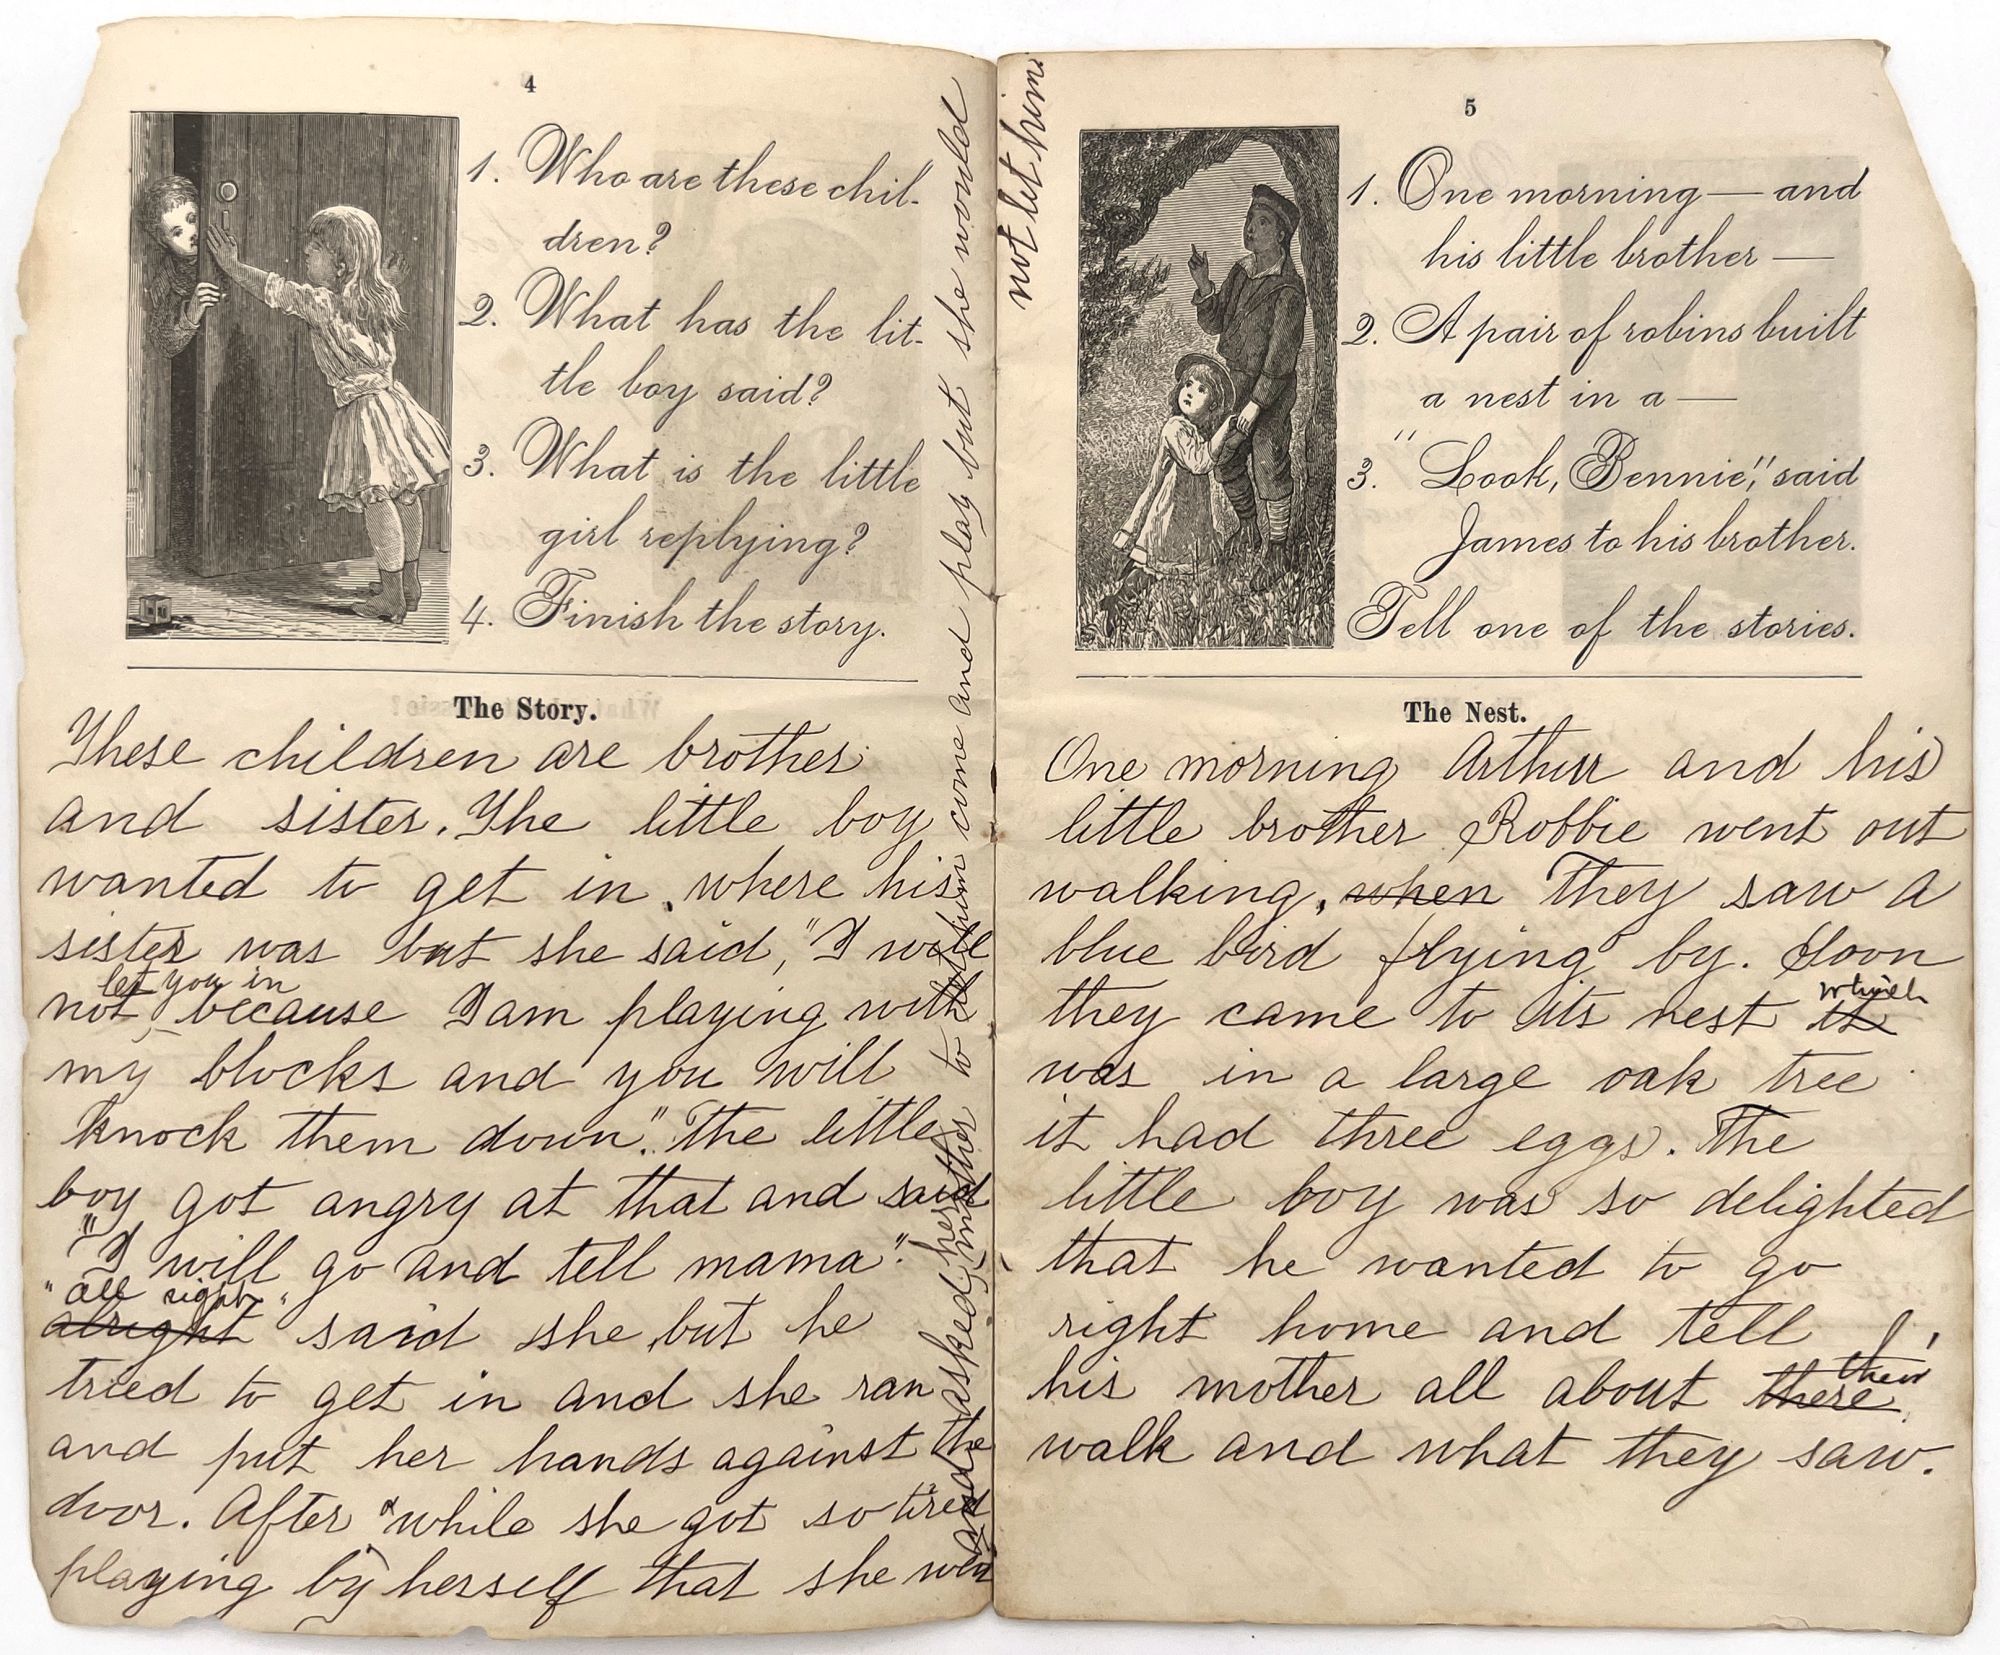 4
1. Who are these chil-
dren?
2. What has the lit-
tle boy said?
3. What is the little
girl replying?
4. Finish the story.
The Story.
These children are brother
and sister. The little boy
wanted to get in where his
sister was but she said, "I will
let you in
not because I am playing with
my blocks and you will
knock them down." The little
boy got angry at that and said
"I will go and tell mama."
"all right"
alright said she but he
tried to get in and she ran
and put her hands against the
door. After a while she got so tired
playing by herself that she went
and asked her mother to let him come and play but she would
not let him
5
1. One morning — and
his little brother —
2. A pair of robins built
a nest in a —
3. "Look, Bennie," said
James to his brother.
Tell one of the stories.
The Nest.
One morning Arthur and his
little brother Robbie went out
walking, when They saw a
blue bird flying by. Soon
which
they came to its nest it
was in a large oak tree
it had three eggs. The
little boy was so delighted
that he wanted to go
right home and tell
their
his mother all about there
walk and what they saw.